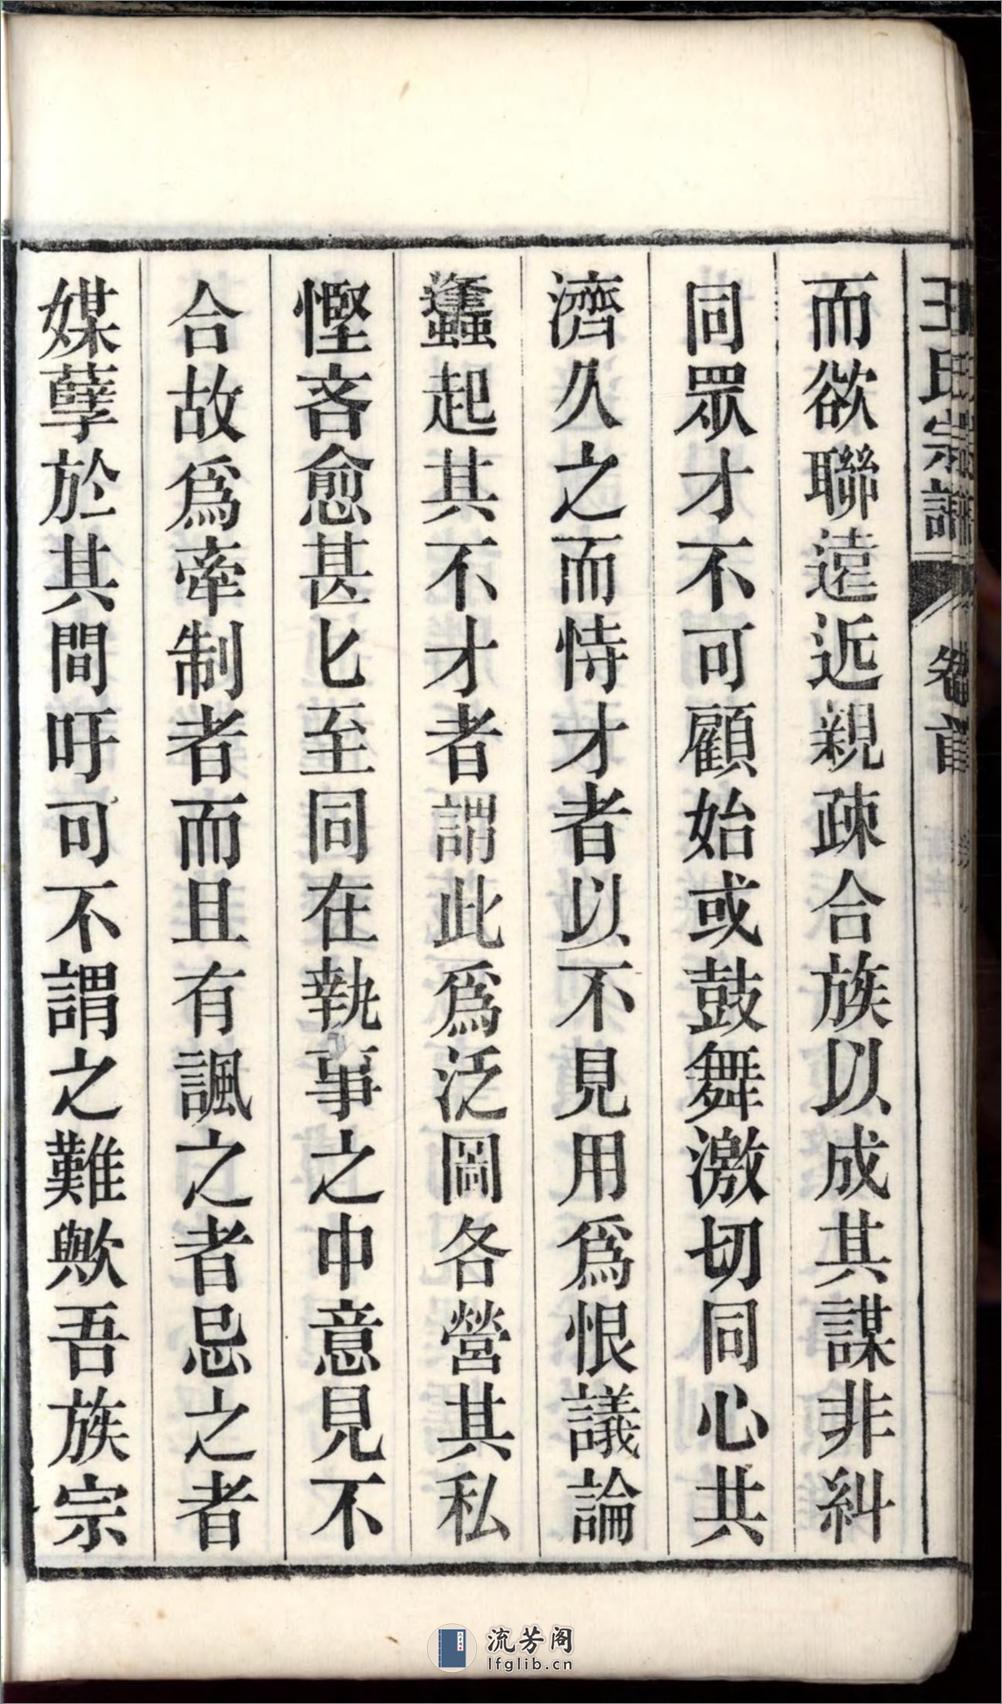 王氏宗譜 卷首
而欲聯遠近親疎合族以成其謀非糾
同眾才不可顧始或鼓舞激切同心共
濟久之而恃才者以不見用爲恨議論
蠭起其不才者謂此爲泛圖各營其私
慳吝愈甚匕至同在執事之中意見不
合故爲牽制者而且有諷之者忌之者
媒孽於其間吁可不謂之難歟吾族宗
流芳阁
lfglib.cn